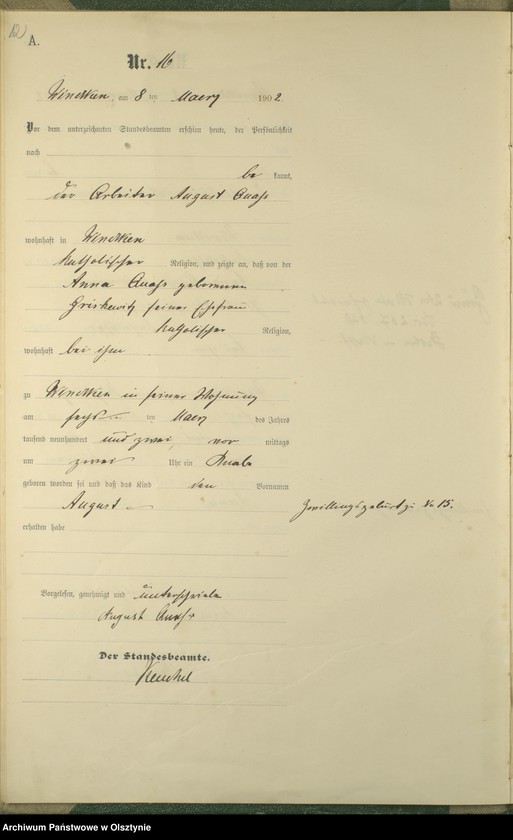 12
A.
Nr. 16
am 8 ten Maerz 1902.
Vor dem unterzeichneten Standesbeamten erschien heute, der Persönlichkeit
nach
be kannt,
der Arbeiter August
wohnhaft in
katholischer Religion, und zeigte an, daß von der
Anna geborenen
seiner Ehefrau
katholischer Religion,
wohnhaft bei ihm
zu in seiner Wohnung
am sechs ten Maerz des Jahres
tausend neunhundert und zwei, vor mittags
um zwei Uhr ein Knabe
geboren worden sei und daß das Kind den Vornamen
August Zwillingsgeburt zu No 15.
erhalten habe
Vorgelesen, genehmigt und unterschrieben
August
Der Standesbeamte.
Archiwum Państwowe w Olsztynie